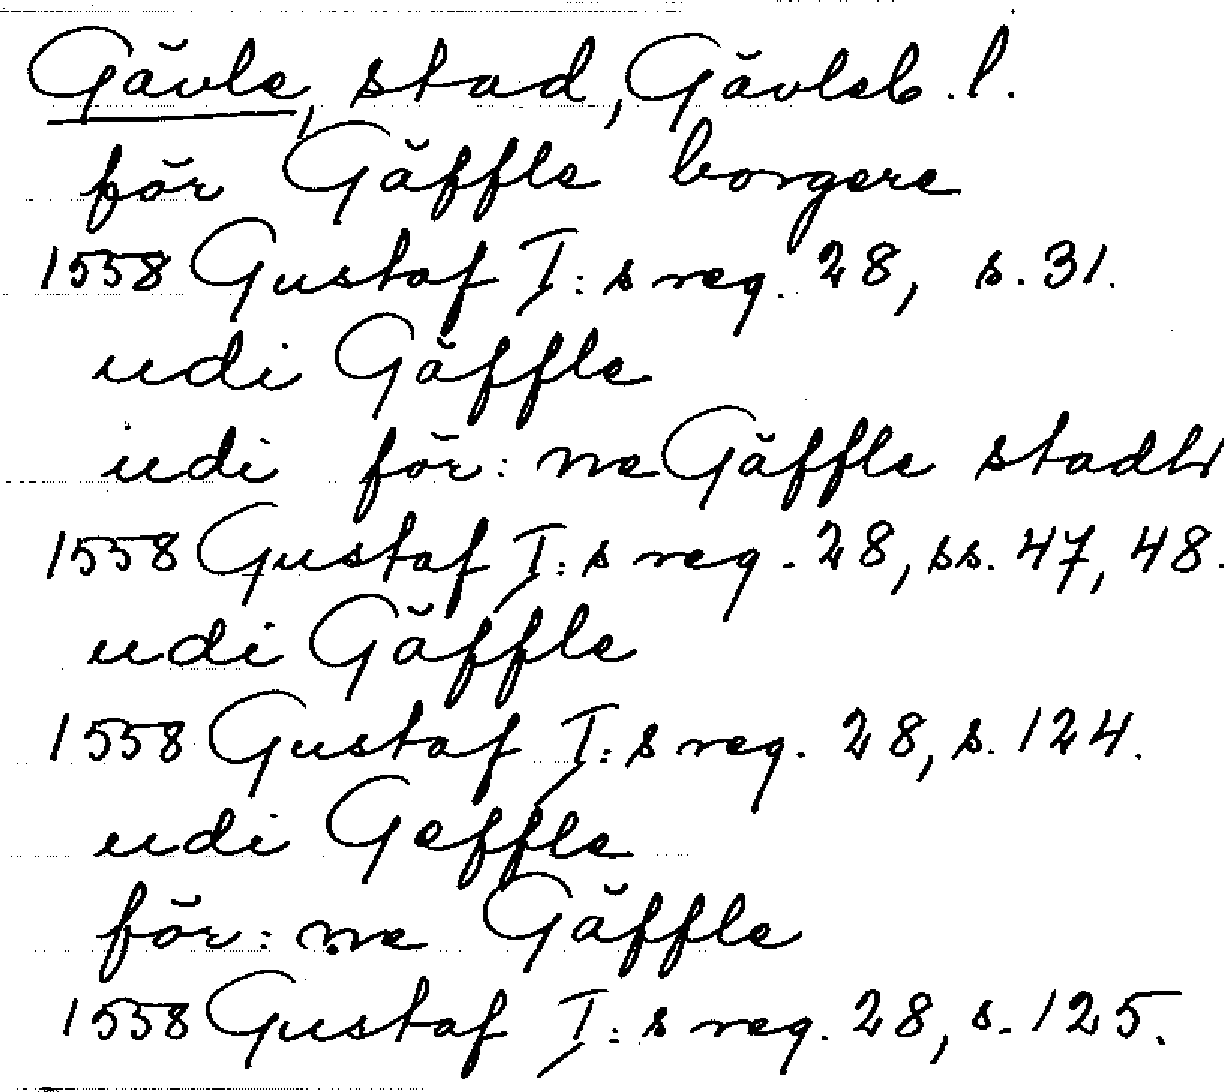 Gävle, stad, Gävleb. l.
för Gäffle borgere
1558 Gustaf I:s reg. 28, s. 31.
udi Gäffle
udi för:ne Gäffle stadh
1558 Gustaf I:s reg. 28, ss. 47, 48.
udi Gäffle
1558 Gustaf I:s reg. 28, s. 124.
udi Geffle
för:ne Gäffle
1558 Gustaf I:s reg. 28, s. 125.